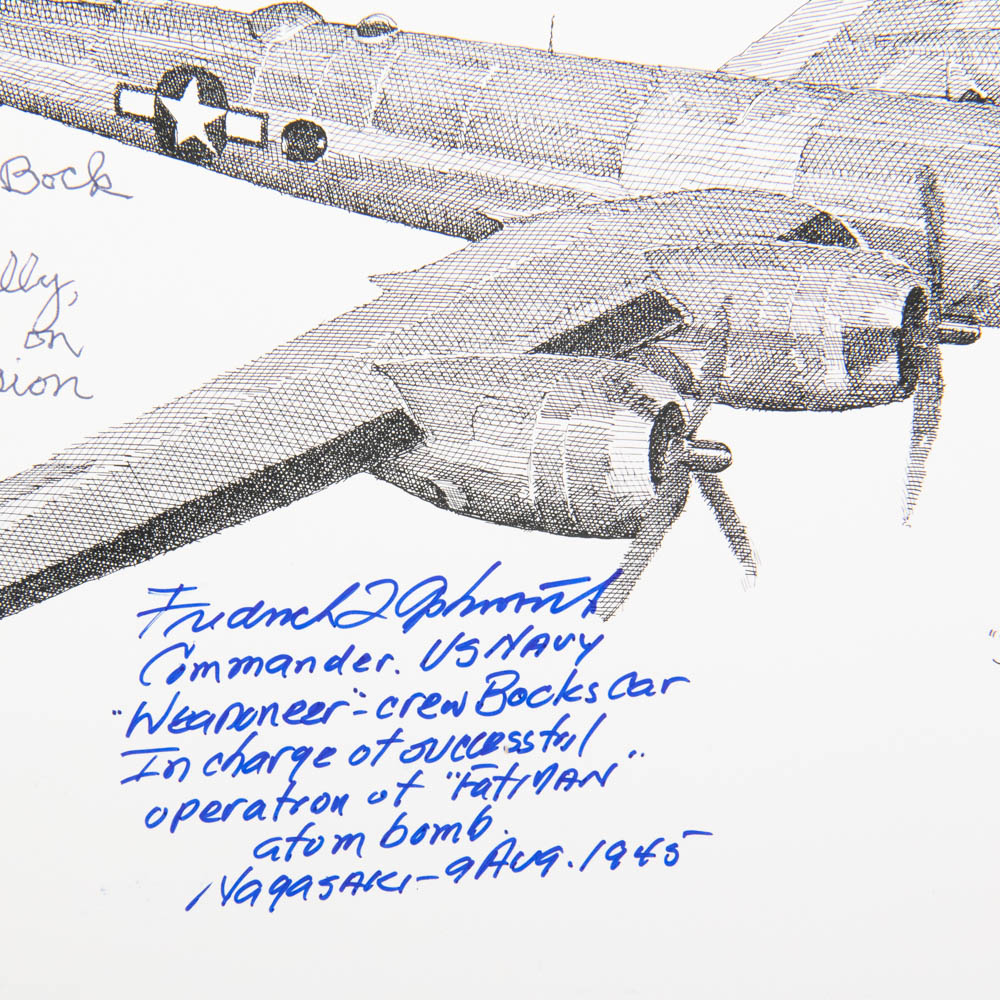 Bock
lly,
on
sion
Frederick L Ashworth
Commander. US NAVY
"Weaponeer"- crew Bocks Car
In charge of successful
operation of "FatMAN"
atom bomb.
Nagasaki - 9 Aug. 1945